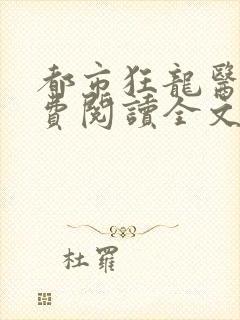 都市狂龍醫
費閱讀全文
杜羅